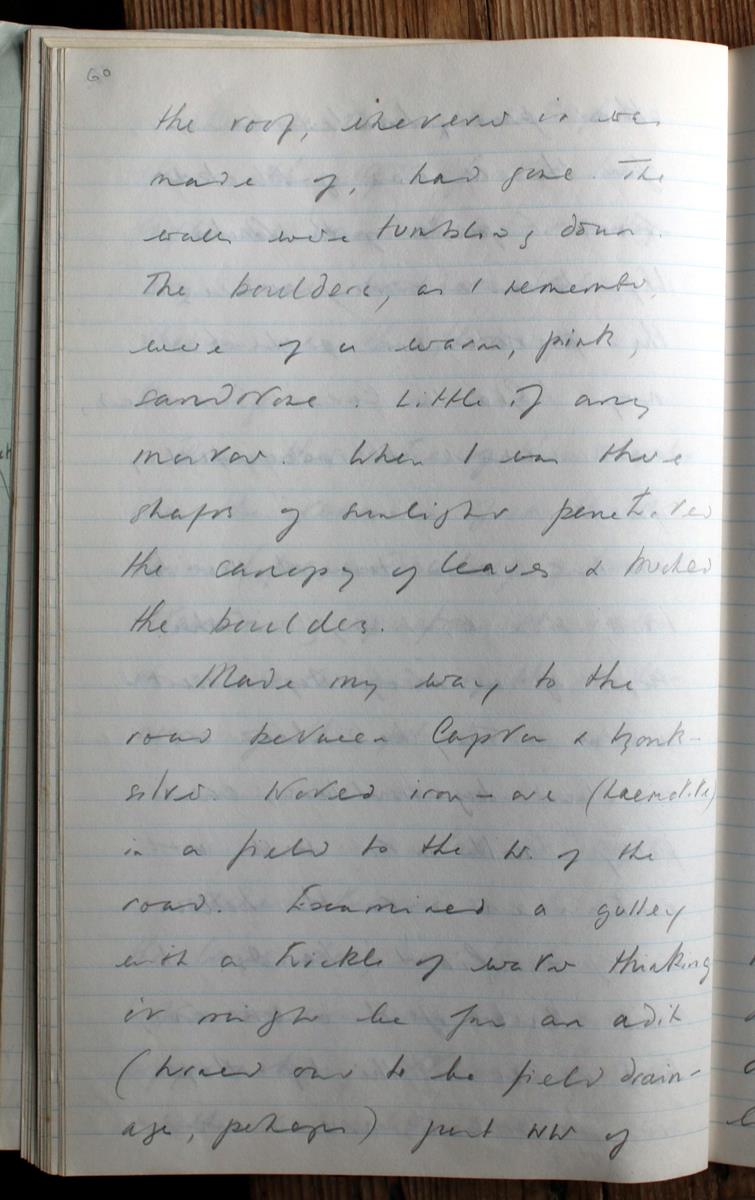 60
the roof, whatever it was
made of, had gone. The
walls were tumbling down.
The boulders, as I remember,
were of a warm, pink,
sandstone. Little if any
mortar. When I was there
shafts of sunlight penetrated
the canopy of leaves & touched
the boulders.
Made my way to the
road between Capton & Monk-
silver. Noted iron-ore (haematite)
in a field to the W. of the
road. Examined a gulley
with a trickle of water thinking
it might be for an adit
(turned out to be field drain-
age, perhaps) just NW of